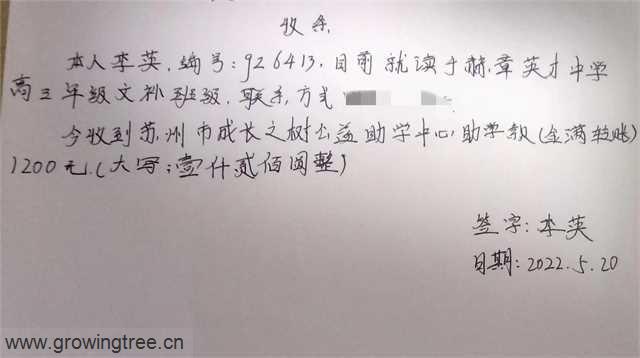 收条
本人李英,编号:926413,目前就读于赫章英才中学
高三年级文补班级,联系方式
今收到苏州市成长之树公益助学中心,助学款(金满转账)
1200元.(大写:壹仟贰佰圆整)
签字:李英
日期:2022.5.20
www.growingtree.cn